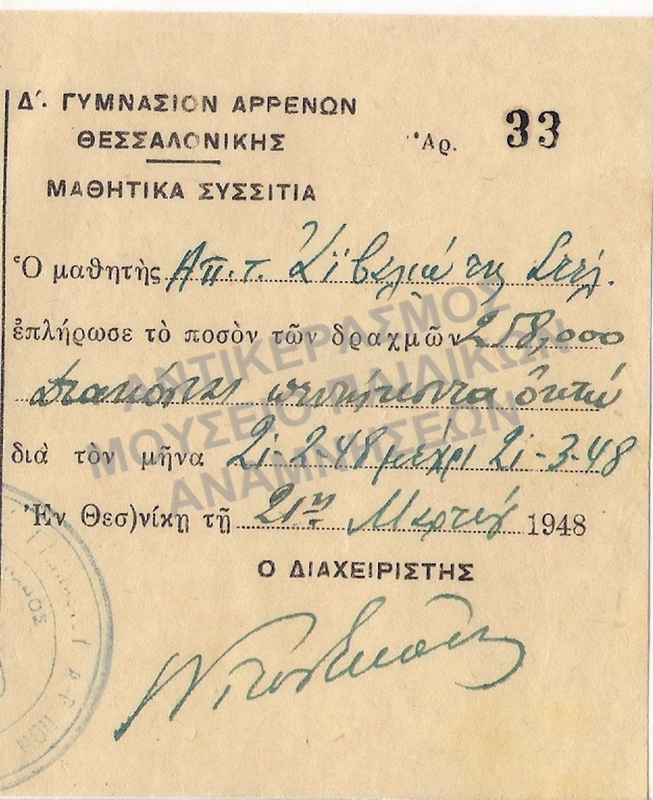 Δ'. ΓΥΜΝΑΣΙΟΝ ΑΡΡΕΝΩΝ
ΘΕΣΣΑΛΟΝΙΚΗΣ
Ἀρ. 33
ΜΑΘΗΤΙΚΑ ΣΥΣΣΙΤΙΑ
Ὁ μαθητής Απ. τ.
ἐπλήρωσε τὸ ποσὸν τῶν δραχμῶν 258,000
διακόσιες πενήκοντα ὀκτώ
διὰ τὸν μῆνα 21-2-48 μέχρι 21-3-48
Ἐν Θεσ)νίκη τῇ 21ῃ Μαρτίου 1948
Ο ΔΙΑΧΕΙΡΙΣΤΗΣ
ΑΝΤΙΚΕΡΑΣΜΟΣ
ΜΟΥΣΕΙΟ ΠΑΙΔΙΚΩΝ
ΑΝΑΜΝΗΣΕΩΝ